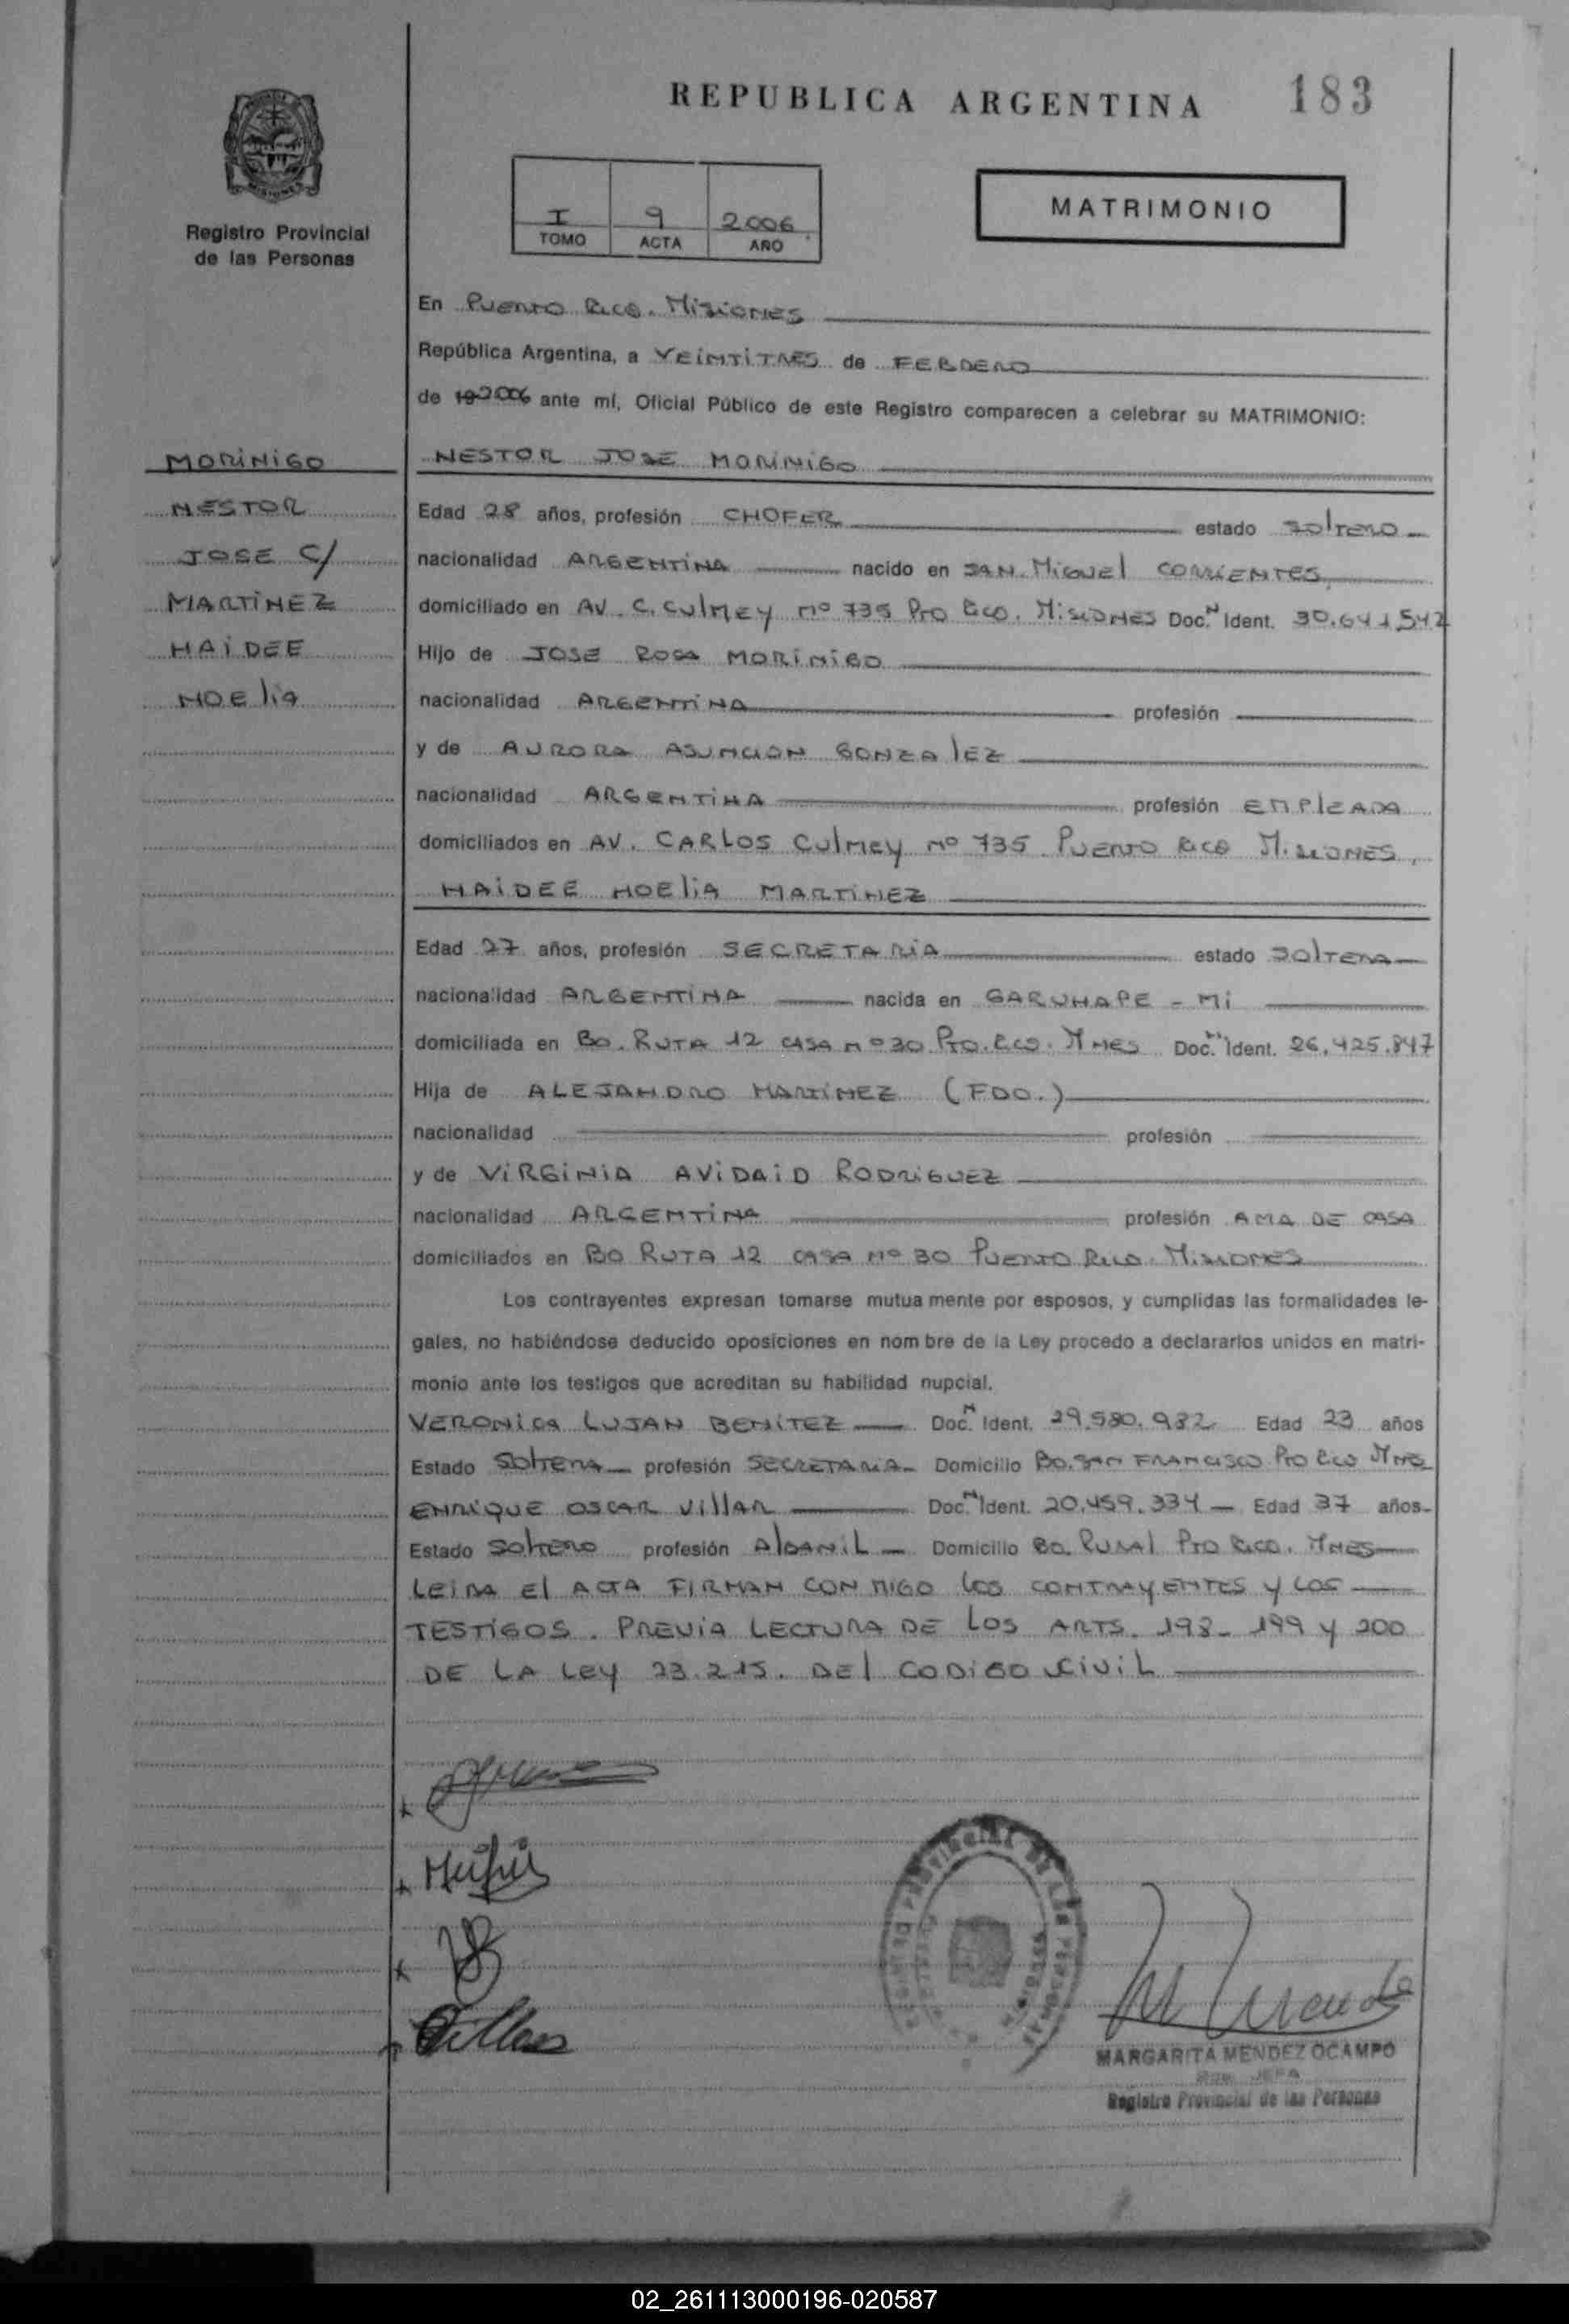 REPUBLICA ARGENTINA
183
MISIONES
Registro Provincial
de las Personas
I 9 2006
TOMO ACTA AÑO
MATRIMONIO
En Puerto Rico. Misiones
República Argentina, a VEINTITRES de FEBRERO
de 19 2006 ante mí, Oficial Público de este Registro comparecen a celebrar su MATRIMONIO:
MORINIGO
NESTOR
JOSE C/
MARTINEZ
HAIDEE
NOELIA
NESTOR JOSE MORINIGO
Edad 28 años, profesión CHOFER estado SOLTERO
nacionalidad ARGENTINA nacido en SAN MIGUEL CORRIENTES,
domiciliado en AV. C. CULMEY Nº 735 PTO RICO. MISIONES Doc. N Ident. 30.641.542
Hijo de JOSE ROSA MORINIGO
nacionalidad ARGENTINA profesión
y de AURORA ASUNCION GONZALEZ
nacionalidad ARGENTINA profesión EMPLEADA
domiciliados en AV. CARLOS CULMEY Nº 735 PUERTO RICO MISIONES,
HAIDEE NOELIA MARTINEZ
Edad 27 años, profesión SECRETARIA estado SOLTERA
nacionalidad ARGENTINA nacida en GARUHAPE - Mi
domiciliada en Bo. RUTA 12 CASA Nº 30 PTO. RICO. MNES Doc. N Ident. 26.425.847
Hija de ALEJANDRO MARTINEZ (FDO.)
nacionalidad profesión
y de VIRGINIA AVIDAID RODRIGUEZ
nacionalidad ARGENTINA profesión AMA DE CASA
domiciliados en BO RUTA 12 CASA Nº 30 PUERTO RICO. MISIONES
Los contrayentes expresan tomarse mutua mente por esposos, y cumplidas las formalidades le-
gales, no habiéndose deducido oposiciones en nom bre de la Ley procedo a declararlos unidos en matri-
monio ante los testigos que acreditan su habilidad nupcial.
VERONICA LUJAN BENITEZ Doc. N Ident. 29.580.982 Edad 23 años
Estado SOLTERA profesión SECRETARIA Domicilio BO. SAN FRANCISCO PTO RICO MNES
ENRIQUE OSCAR VILLAR Doc. N Ident. 20.459.334 Edad 37 años
Estado SOLTERO profesión ALBAÑIL Domicilio BO. RURAL PTO RICO. MNES
LEIDA EL ACTA FIRMAN CON MIGO LOS CONTRAYENTES Y LOS
TESTIGOS. PREVIA LECTURA DE LOS ARTS. 198- 199 Y 200
DE LA LEY 23.215. DEL CODIGO CIVIL
MARGARITA MENDEZ OCAMPO
JEFA
Registro Provincial de las Personas
02_261113000196-020587